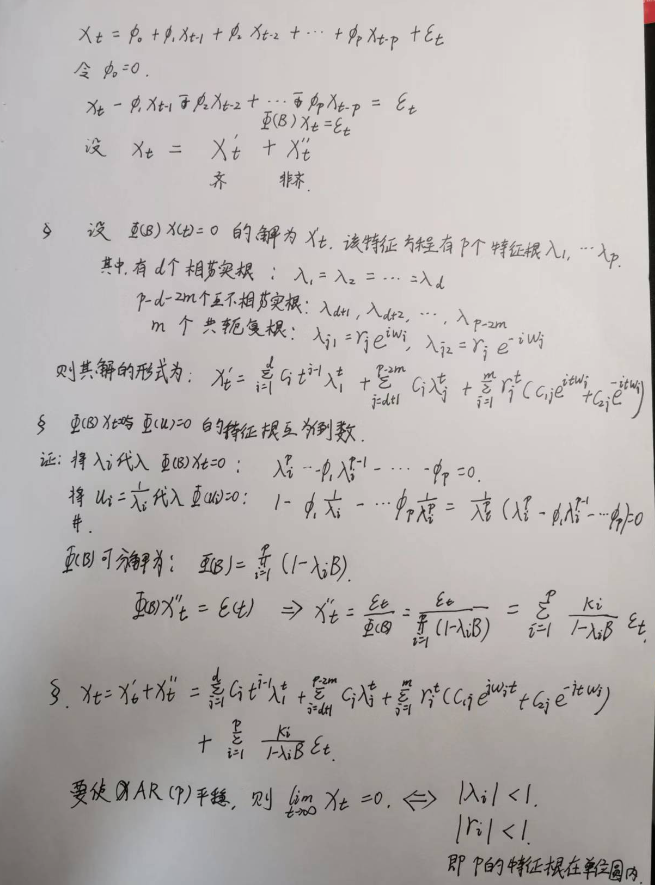 Xt = φ₀ + φ₁Xt-1 + φ₂Xt-2 + ··· + φpXt-p + εt
令 φ₀=0.
Xt - φ₁Xt-1 φ₂Xt-2 + ··· φpXt-p = εt
Φ(B)Xt=εt
设 Xt = Xt′ + Xt″
齐 非齐.
§ 设 Φ(B)X(t)=0 的解为 Xt′. 该特征方程有p个特征根λ₁, ···λp.
其中, 有d个相等实根: λ₁=λ₂= ··· =λd
p-d-2m个互不相等实根: λd+1, λd+2, ···, λp-2m
m个共轭复根: λj1=rje^{iwj}, λj2=rje^{-iwj}
则其解的形式为: Xt′ = Σ_{i=1}^{d} Ci t^{i-1}λ₁^t + Σ_{j=d+1}^{p-2m} Cjλj^t + Σ_{j=1}^{m} rj^t(C₁je^{itwj}+C₂je^{-itwj})
§ Φ(B)Xt=0与Φ(u)=0的特征根互为倒数.
证: 将λi代入Φ(B)Xt=0: λi^p - φ₁λi^{p-1} - ··· - φp=0.
将ui=1/λi代入Φ(ui)=0: 1 - φ₁1/λi - ···φp1/λi^p = 1/λi^p (λi^p - φ₁λi^{p-1} - ···φp)=0
#.
Φ(B)可分解为: Φ(B)=Π_{i=1}^{p}(1-λiB).
Φ(B)Xt″ = ε(t) ⇒ Xt″ = εt/Φ(B) = εt/Π_{i=1}^{p}(1-λiB) = Σ_{i=1}^{p} ki/(1-λiB) εt.
§. Xt=Xt′+Xt″ = Σ_{i=1}^{d} Ci t^{i-1}λ₁^t + Σ_{j=d+1}^{p-2m} Cjλj^t + Σ_{j=1}^{m} rj^t(C₁je^{iwjt}+C₂je^{-itwj})
+ Σ_{i=1}^{p} ki/(1-λiB) εt.
要使 AR(p)平稳, 则 lim_{t→∞} Xt=0. ⇔ |λi|<1.
|ri|<1.
即P的特征根在单位圆内.